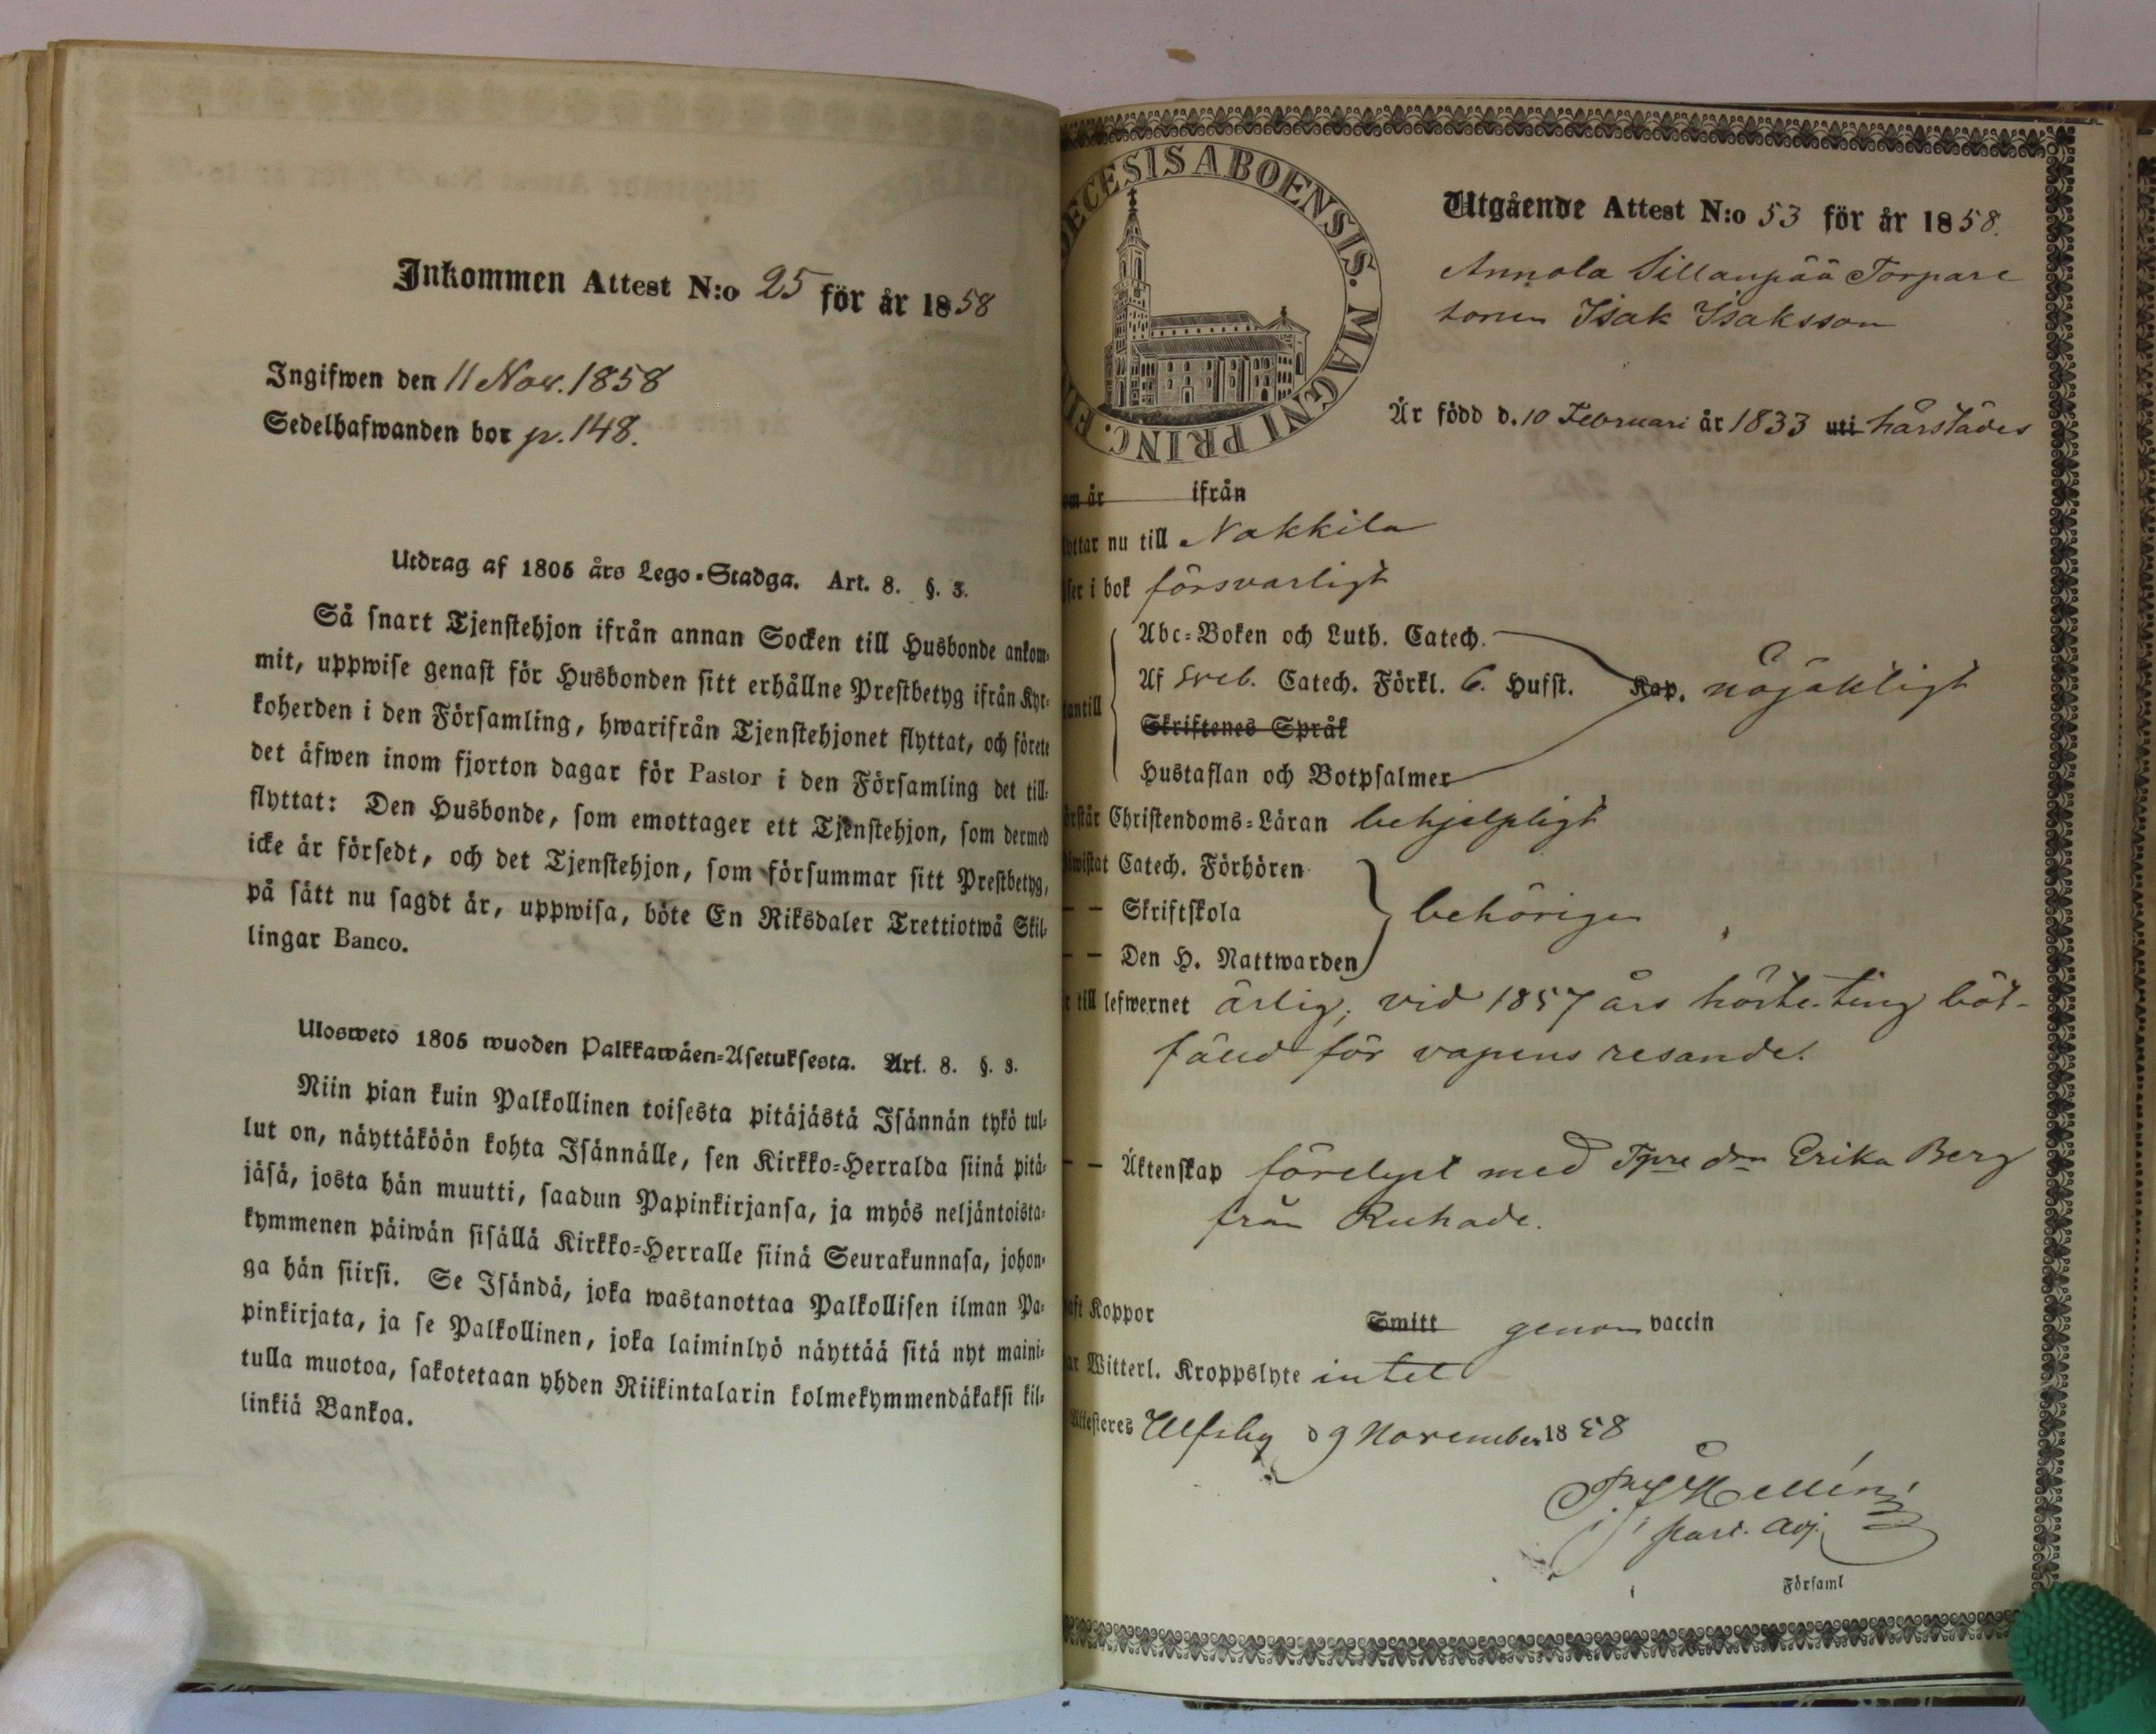 Inkommen Attest N:o 25 för år 1858
Ingifwen den 11 Nov. 1858
Sedelhafwanden bor p. 148.
Utdrag af 1805 års Lego-Stadga. Art. 8. §. 3.
Så snart Tjenstehjon ifrån annan Socken till Husbonde ankom-
mit, uppwise genast för Husbonden sitt erhållne Prestbetyg ifrån Kyr-
koherden i den Församling, hwarifrån Tjenstehjonet flyttat, och förete
det äfwen inom fjorton dagar för Pastor i den Församling det till-
flyttat: Den Husbonde, som emottager ett Tjenstehjon, som dermed
icke är försedt, och det Tjenstehjon, som försummar sitt Prestbetyg,
på sätt nu sagdt är, uppwisa, böte En Riksdaler Trettiotwå Skil-
lingar Banco.
Uloswetö 1805 wuoden Palkkawäen-Asetuksesta. Art. 8. §. 3.
Niin pian kuin Palkollinen toisesta pitäjästä Isännän tykö tul-
lut on, näyttäköön kohta Isännälle, sen Kirkko-Herralda siinä pitä-
jäsä, josta hän muutti, saadun Papinkirjansa, ja myös neljäntoista-
kymmenen päiwän sisällä Kirkko-Herralle siinä Seurakunnasa, johon-
ga hän siirsi. Se Isändä, joka wastanottaa Palkollisen ilman Pa-
pinkirjata, ja se Palkollinen, joka laiminlyö näyttää sitä nyt maini-
tulla muotoa, sakotetaan yhden Riikintalarin kolmekymmendäkaksi kil-
linkiä Bankoa.
DECESIS ABOENSIS. MAGNI PRINC. FI
Utgående Attest N:o 53 för år 1858.
Annola Sillanpää Torpare
sonen Isak Isaksson
Är född d. 10 Februari år 1833 uti härstädes
om år ifrån
yttar nu till Nakkila
ser i bok försvarligt
Abc-Boken och Luth. Catech.
Af Sveb. Catech. Förkl. 6. Hufst. Kap. nöjaktligt
antill
Skriftenes Språk
Hustaflan och Botpsalmer
örstår Christendoms-Läran behjelpligt
iwistat Catech. Förhören
— — Skriftskola behörigen
— — Den H. Nattwarden
r till lefwernet ärlig; vid 1857 års höste-ting böt-
fälld för vapens resande.
— — Äktenskap förelyst med Tpre dn Erika Berg
från Ruhade.
aft Koppor Smitt genom vaccin
ar Witterl. Kroppslyte intet
Attesteres Ulfsby d 9 November 1858
Hellén
past. adj.
Församl